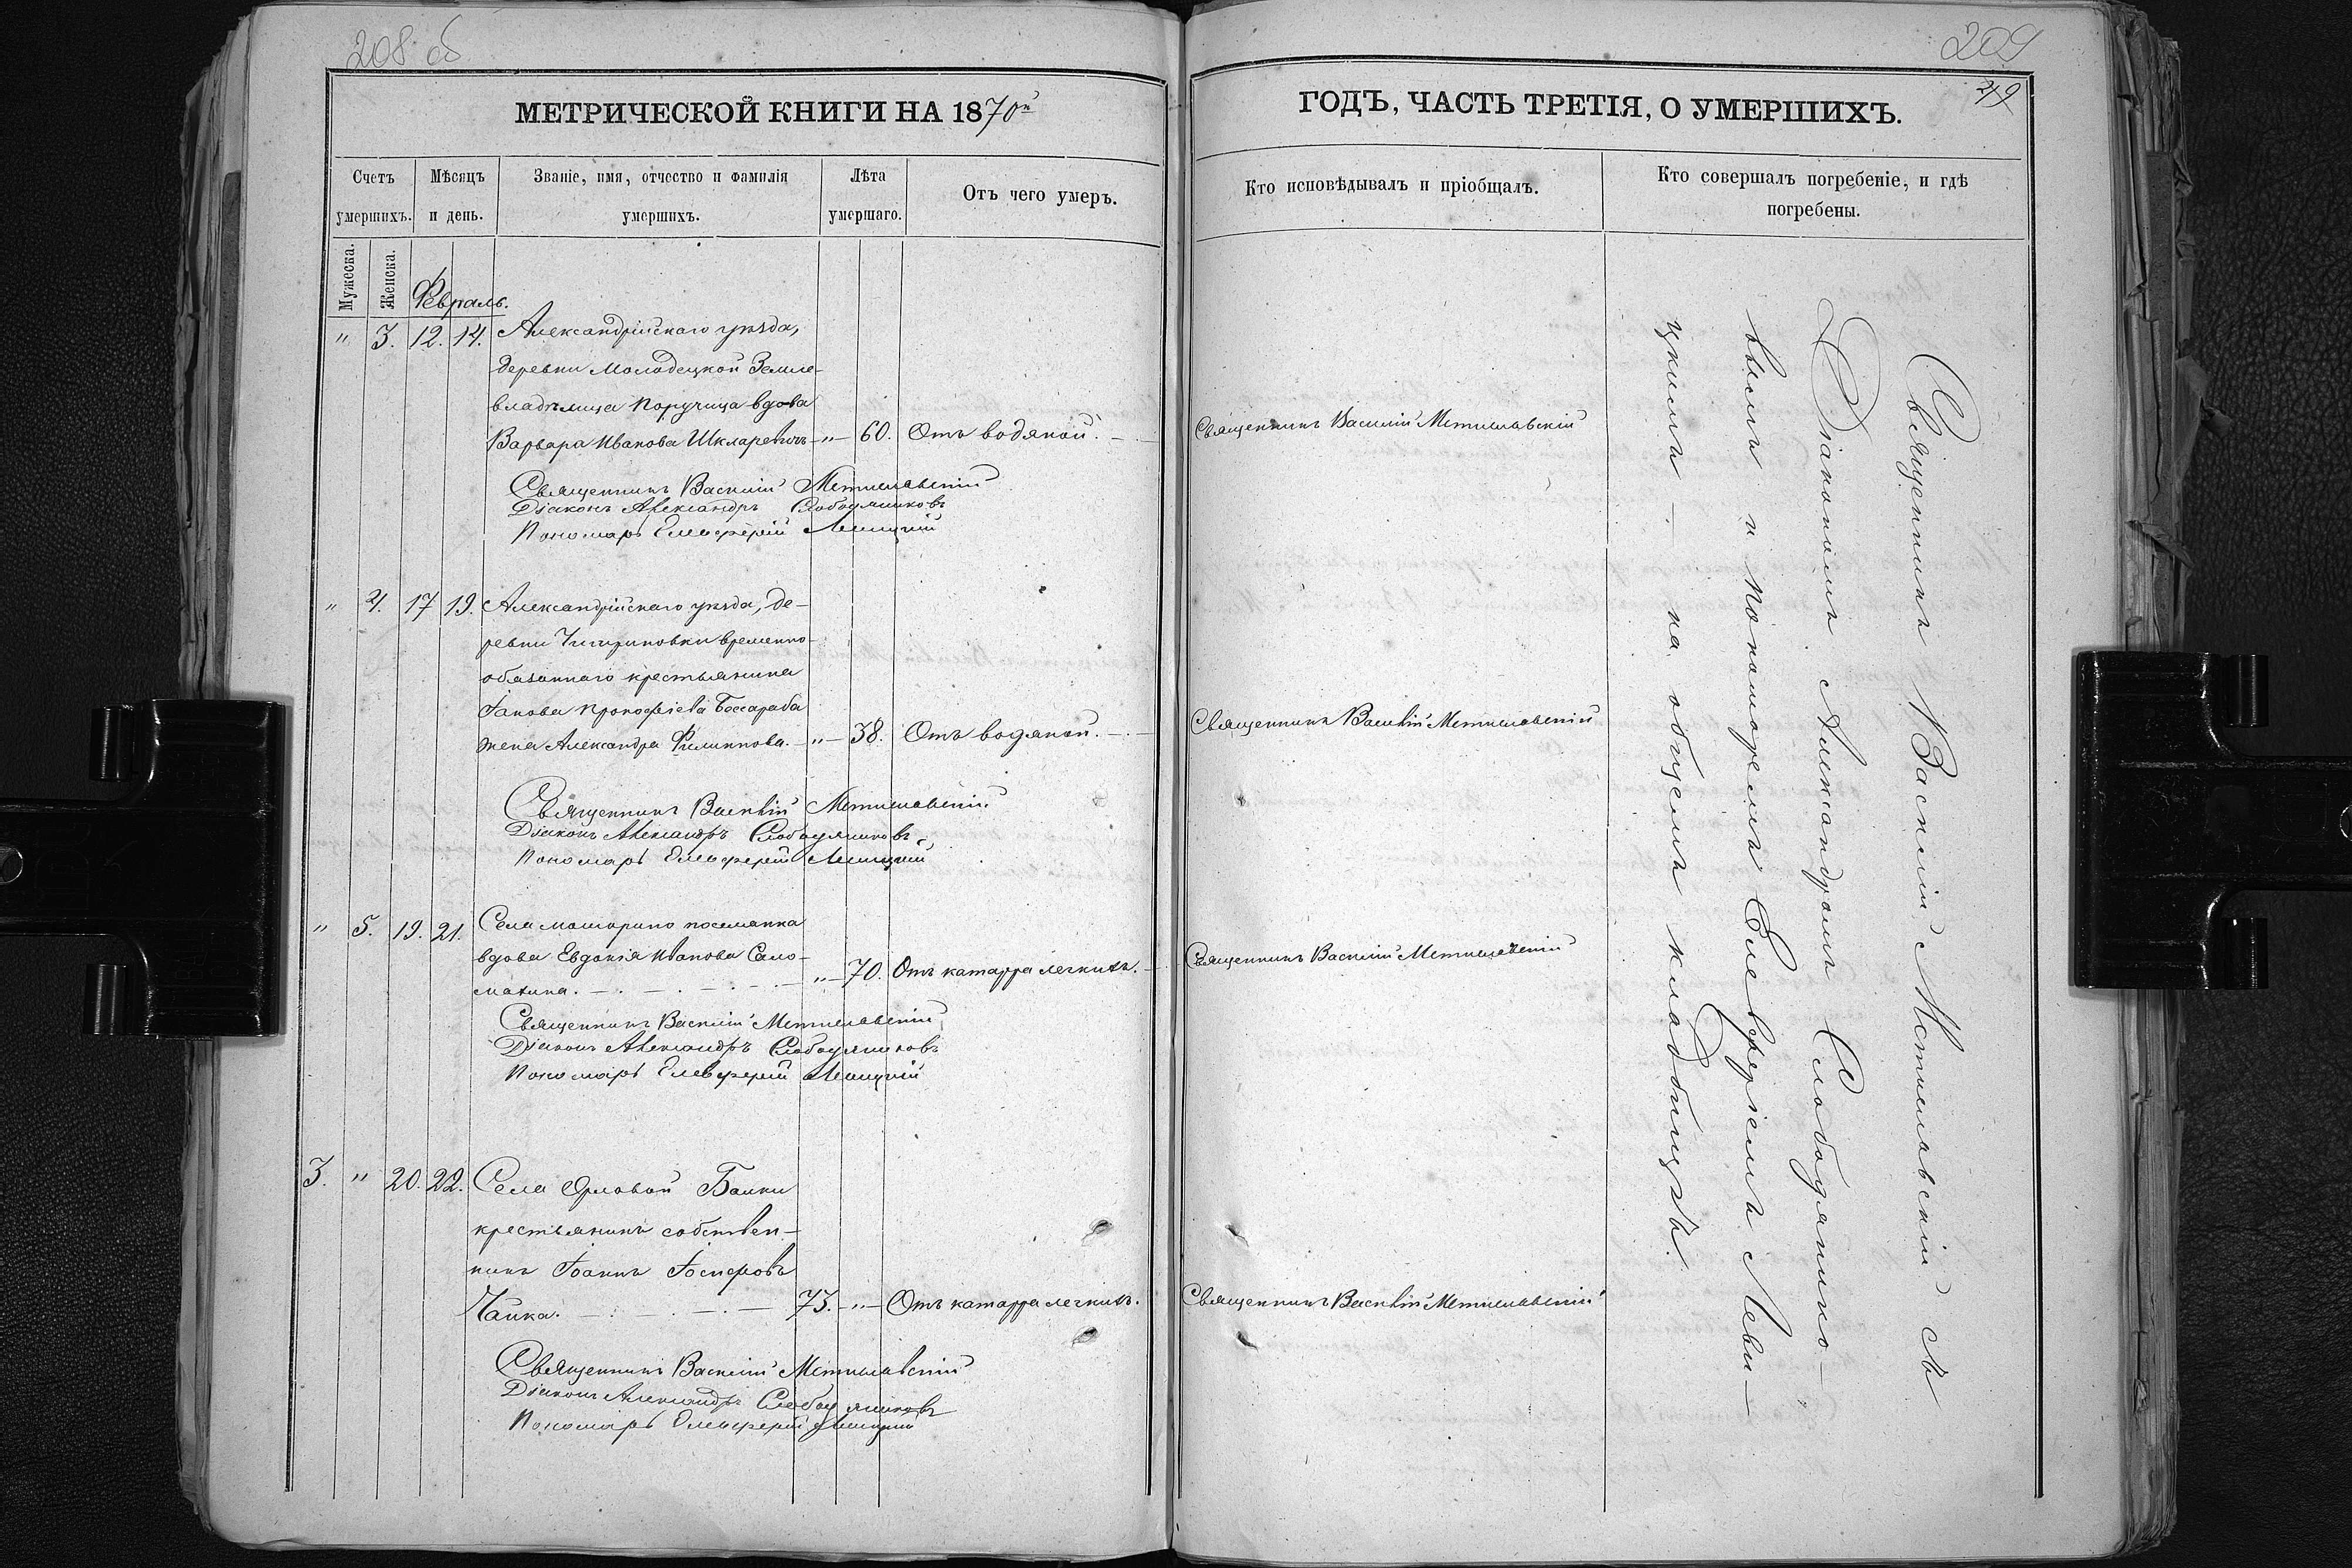 208 об
МЕТРИЧЕСКОЙ КНИГИ НА 1870й
Счетъ умершихъ.
Мѣсяцъ и день.
Званіе, имя, отчество и фамилія умершихъ.
Лѣта умершаго.
Отъ чего умеръ.
Мужеска.
Женска.
Февраль.
" 3. 12. 14. Александрійскаго уѣзда,
деревни Молодецкой Земле-
владѣлица Поручица вдова
Варвара Иванова Шкларевичъ - " - 60. Отъ водяной. -
Священникъ Василій Мстиславскій
Діаконъ Александръ Слободяниковъ
Пономарь Елевферій Левицкій
" 4. 17 19. Александрійскаго уѣзда, де-
ревни Чигириновки временно-
обязаннаго крестьянина
Іакова Прокофіева Бессараба
жена Александра Филиппова. - " - 38. Отъ водяной. - . -
Священникъ Василій Мстиславскій
Діаконъ Александръ Слободяниковъ
Пономарь Елевферій Левицкій
" 5. 19. 21. Села Машорино поселянка
вдова Евдокія Иванова Сало-
махина. - . - . - . - . - " - 70. Отъ катарра легкихъ. -
Священникъ Василій Мстиславскій
Діаконъ Александръ Слободяниковъ
Пономарь Елевферій Левицкій
3. " 20. 22. Села Орловой Балки
крестьянинъ собствен-
никъ Іоаннъ Іосифовъ
Чайка. - . - . - 73. - " - Отъ катарра легкихъ.
Священникъ Василій Мстиславскій
Діаконъ Александръ Слободяниковъ
Пономарь Елевферій Левицкій
209
49
ГОДЪ, ЧАСТЬ ТРЕТІЯ, О УМЕРШИХЪ.
Кто исповѣдывалъ и пріобщалъ.
Кто совершалъ погребеніе, и гдѣ
погребены.
Священникъ Василій Мстиславскій
Священникъ Василій Мстиславскій
Священникъ Василій Мстиславскій
Священникъ Василій Мстиславскій
Священникъ Василій Мстиславскій съ
Діакономъ Александромъ Слободянико-
вымъ и Пономоремъ Елевферіемъ Леви-
цкимъ - . - на общемъ кладбищѣ.